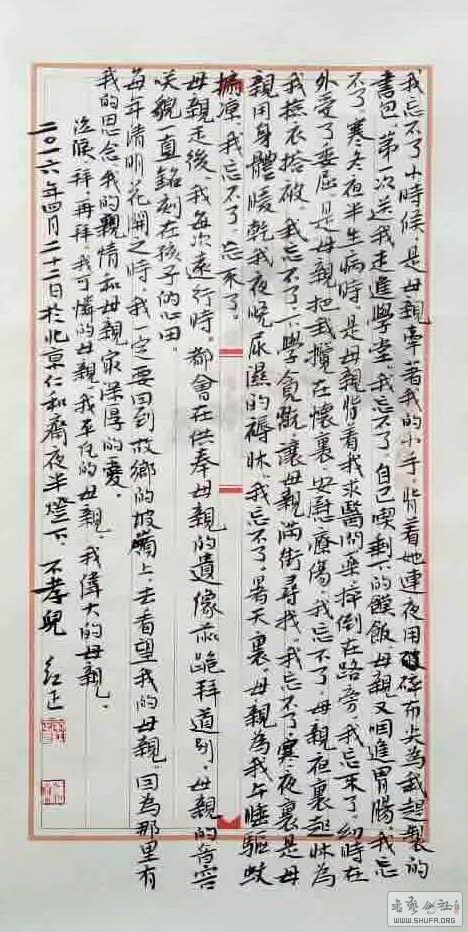 我忘不了小時候，是母親牽著我的小手，背着她連夜用碎布头為我趕製的
書包第一次送我走進學堂。我忘不了，自己喫剩下的餿飯母親又咽進胃腸。我忘
不了寒冬夜半生病時，是母親背着我求醫問藥摔倒在路旁。我忘不了，幼時在
外受了委屈，是母親把我攬在懷裏，安慰療傷。我忘不了，母親夜裏起床為
我捻衣捨被。我忘不了，下學貪玩讓母親满街尋我。我忘不了，寒夜裏是母
親用身體暖乾我夜晚尿濕的褥床。我忘不了，暑天裏，母親為我占睡驅蚊
搧凉。我忘不了，忘不了。
母親走後，我每次遠行時，都會在供奉母親的遺像前跪拜道别，母親的音容
咲貌一直銘刻在孩子的心田。
每年清明花開之時，我一定要回到故鄉的坡崗上，去看望我的母親，因為那里有
我的思念我的親情和母親家深厚的愛。
泣候拜，再拜，我可憐的母親，我平凡的母親，我偉大的母親。
二〇一六年四月二十二日於北京仁和齋夜半燈下，不孝兒 紅正
書藝公社
WWW.SHUFA.ORG